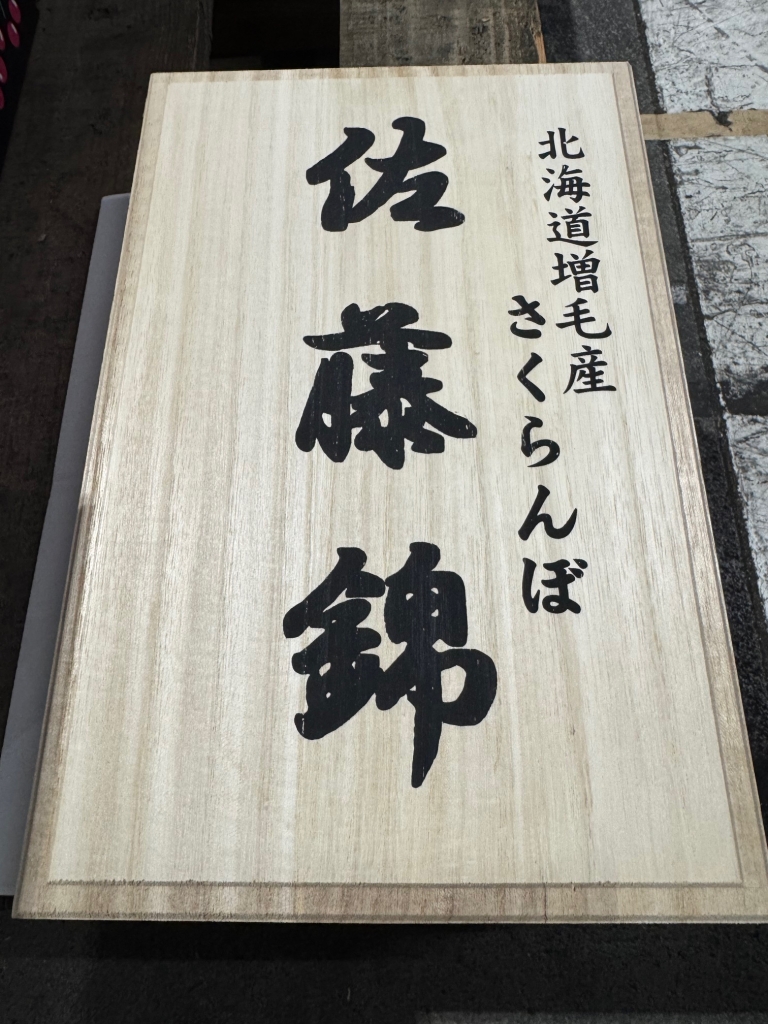 北海道増毛産
さくらんぼ
佐藤錦